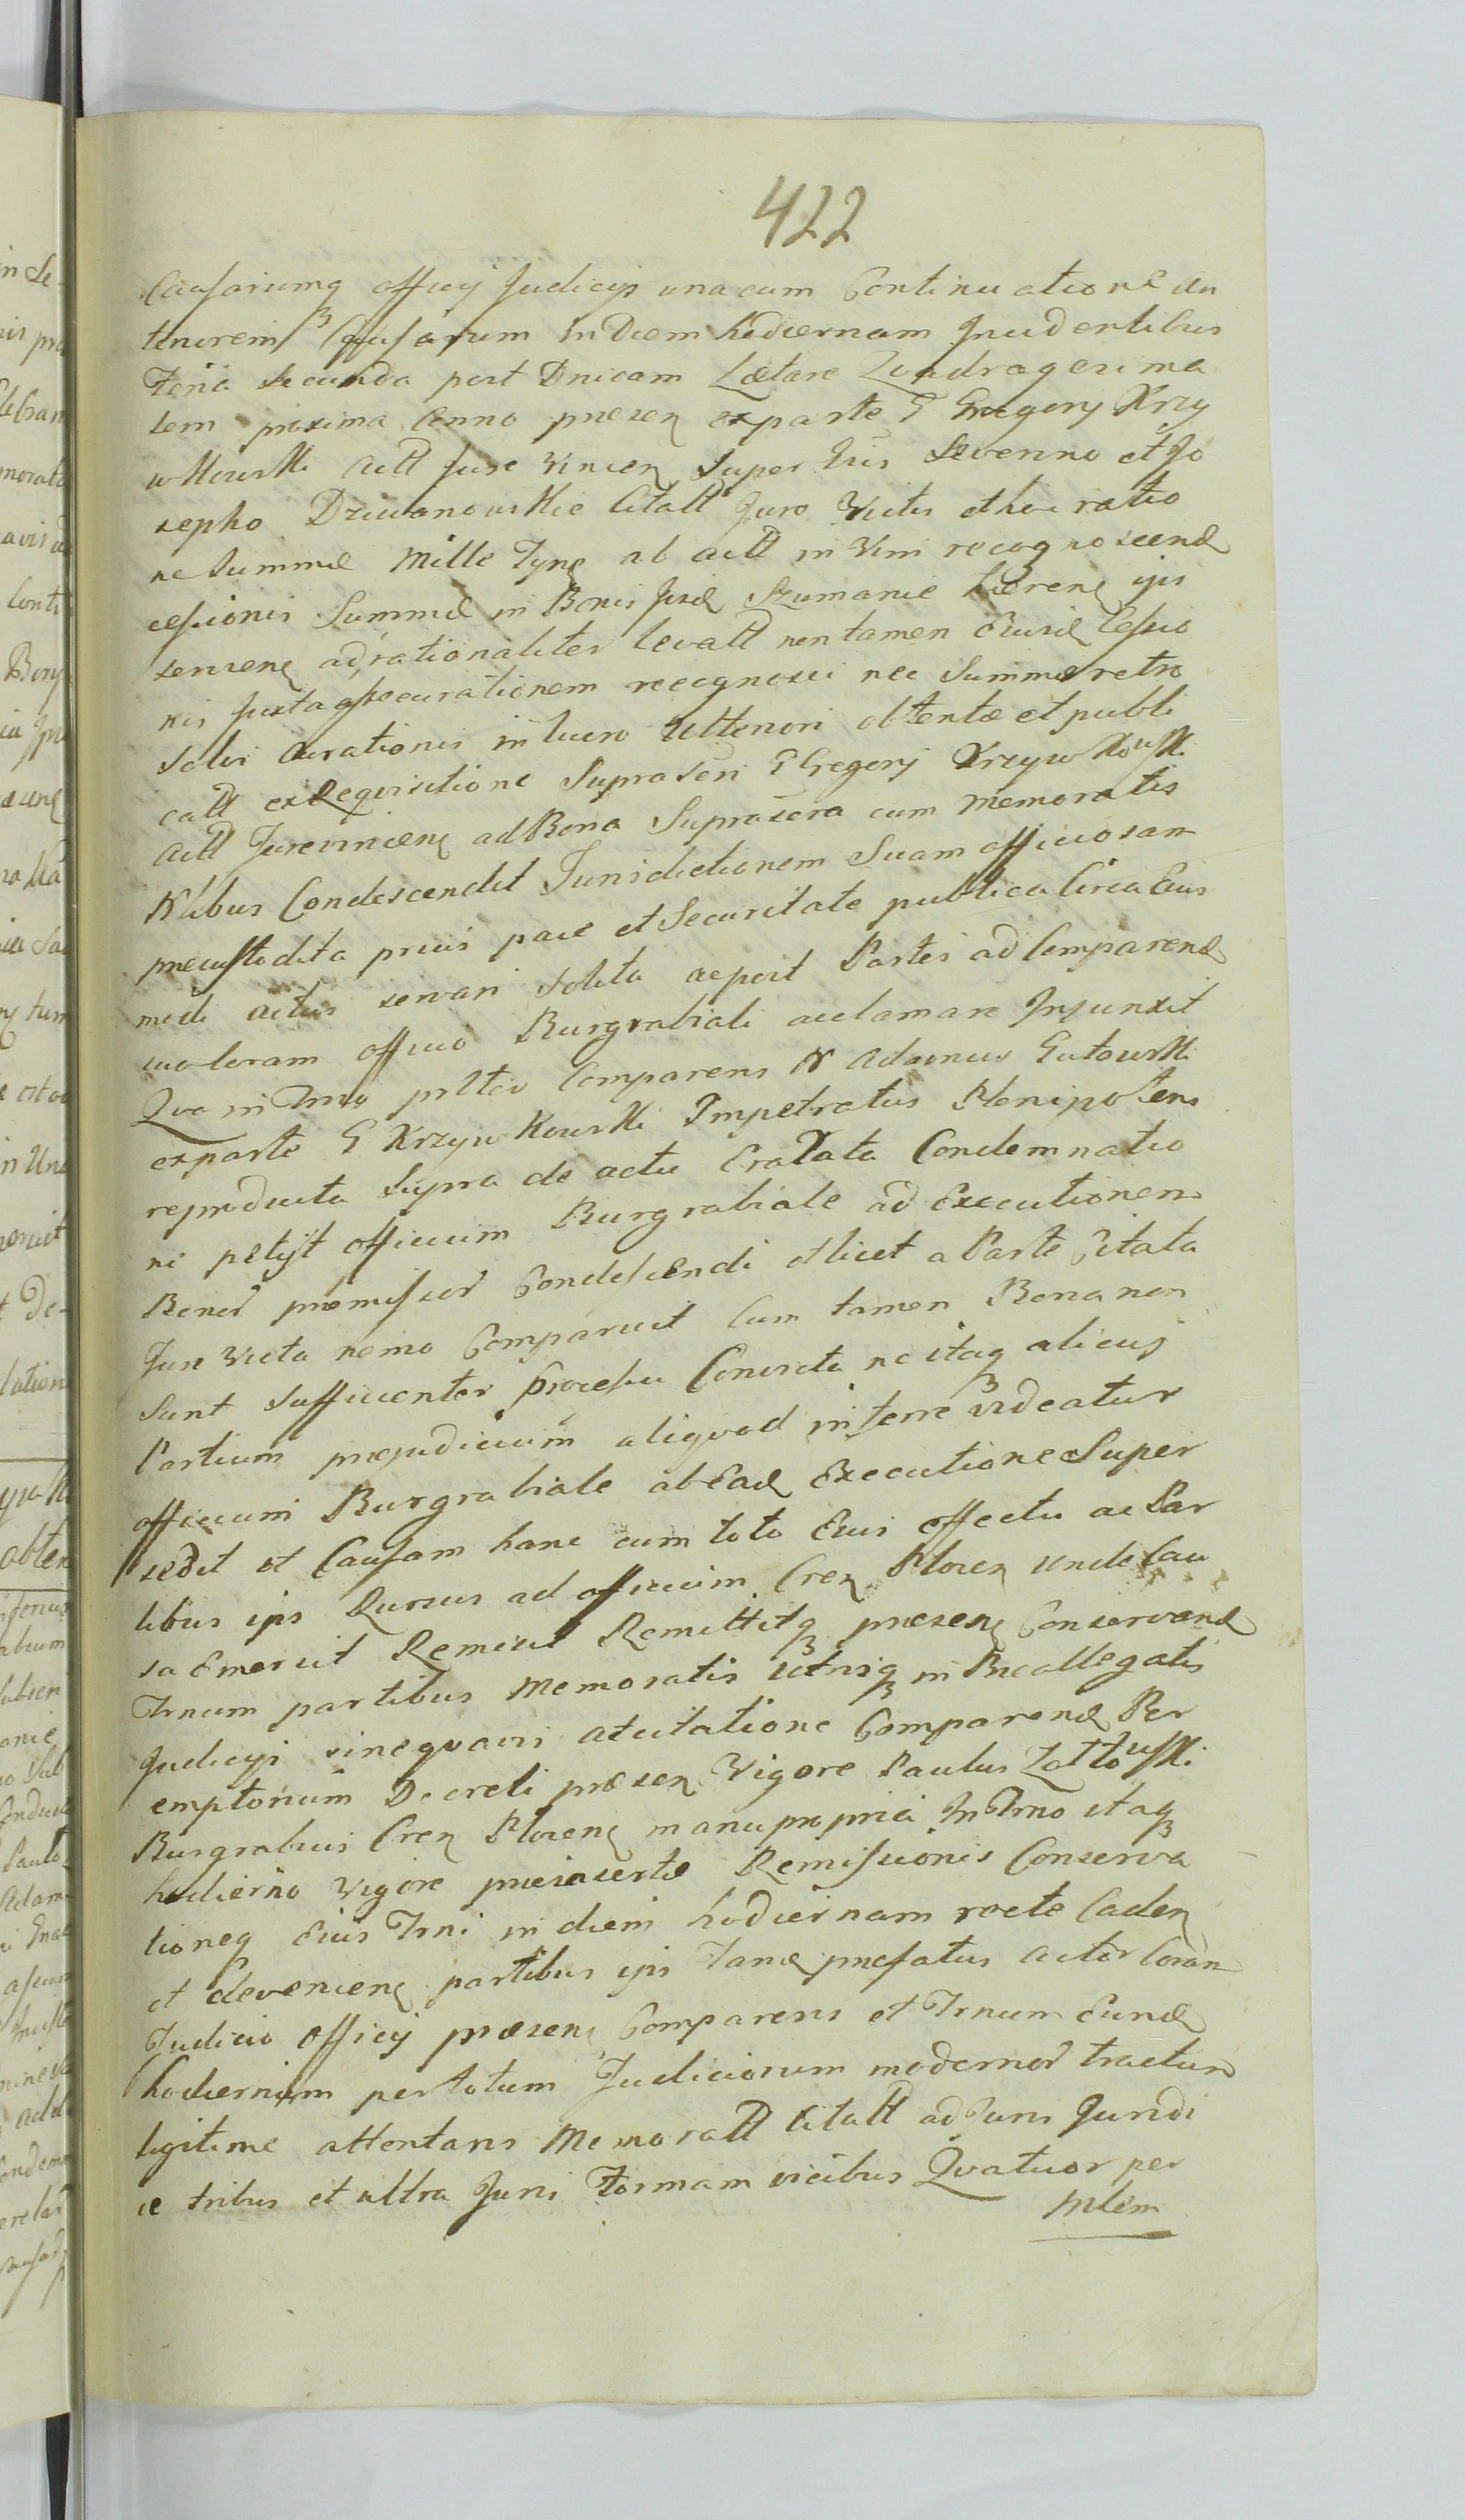 422
Causarumq officij Judicijs unacum Continuatione an
teriorem Causarum in Diem hodiernam Incidentibus
Feria secunda post Dnicam Lætare Quadragesima
lem proxima Anno præsen exparte G Gregorij Krzy
wkowski Act Jure vincen Super Gris Severino et Jo
sepho Dziwanowskie Citatt Jure Victis et hoc ratio
ne Summæ Mille Tynf ab act in Vim recognoscend
cessionis Summæ in Bonis Jisd Szumanie hæren ijs
servien ad rationaliter levatt non tamen Eiusd Cessio
nis Juxta assecurationem recognosci nec Summæ retro
solvi Curationis in lucro Ulteriori obtentæ et publi
catt ex Requisitione Suprascri G Gregorij Krzywkowski
Act Jurevincen ad Bona Suprascra cum memoratis
Nlibus Condescendit Jurisdictionem Suam officiosam
præcustodita prius pace et Securitate publica Circa Eius
modi actus servari solita ac post Partes ad Comparend
coram officio Burgrabiali acclamare Injunxit
Quo in Trno pritto Comparens N Adamus Gutowski
exparte G Krzywkowski Impetratus Plenipotens
reproducta Supra de actu Era Data Condemnatio
ni petijt officium Burgrabiale ad Executionem
Bonor præmissor Condescendi et licet a Parte Citata
Jure Victa nemo Comparuit Cum tamen Bona non
Sunt Sufficienter Processu Convicta ne itaq alicuj
Partium præjudicium aliquod inferre videatur
officium Burgrabiale ab Ead Executione Super
sedit et Causam hanc cum toto Eius effectu ac Par
tibus ijs Rursus ad officium Cren Plocen unde Cau
sa Emersit Remisit Remittitq præsen Conservand
Trnum partibus Memoratis Utrisq in Præallegatis
Judicijs sinequavis adcitatione Comparend Per
emptorium Decreti præsen Vigore Paulus Zottowski
Burgrabius Cren Plocen manu propria In Trno itaq
hodierno vigore præinsertæ Remissionis Conserva
tioneq Eius Trni in diem hodiernam recte Caden
et devenien partibus ijs Tand præfatus actor Coram
Judicio officij præsen Comparens et Trnum Eund
hodiernum per totum Judiciorum modernor tractum
legitime attentans Memoratt Citatt ad Juris Juridi
ce tribus et ultra Juris Formam vicibus Quatuor per
Mlem